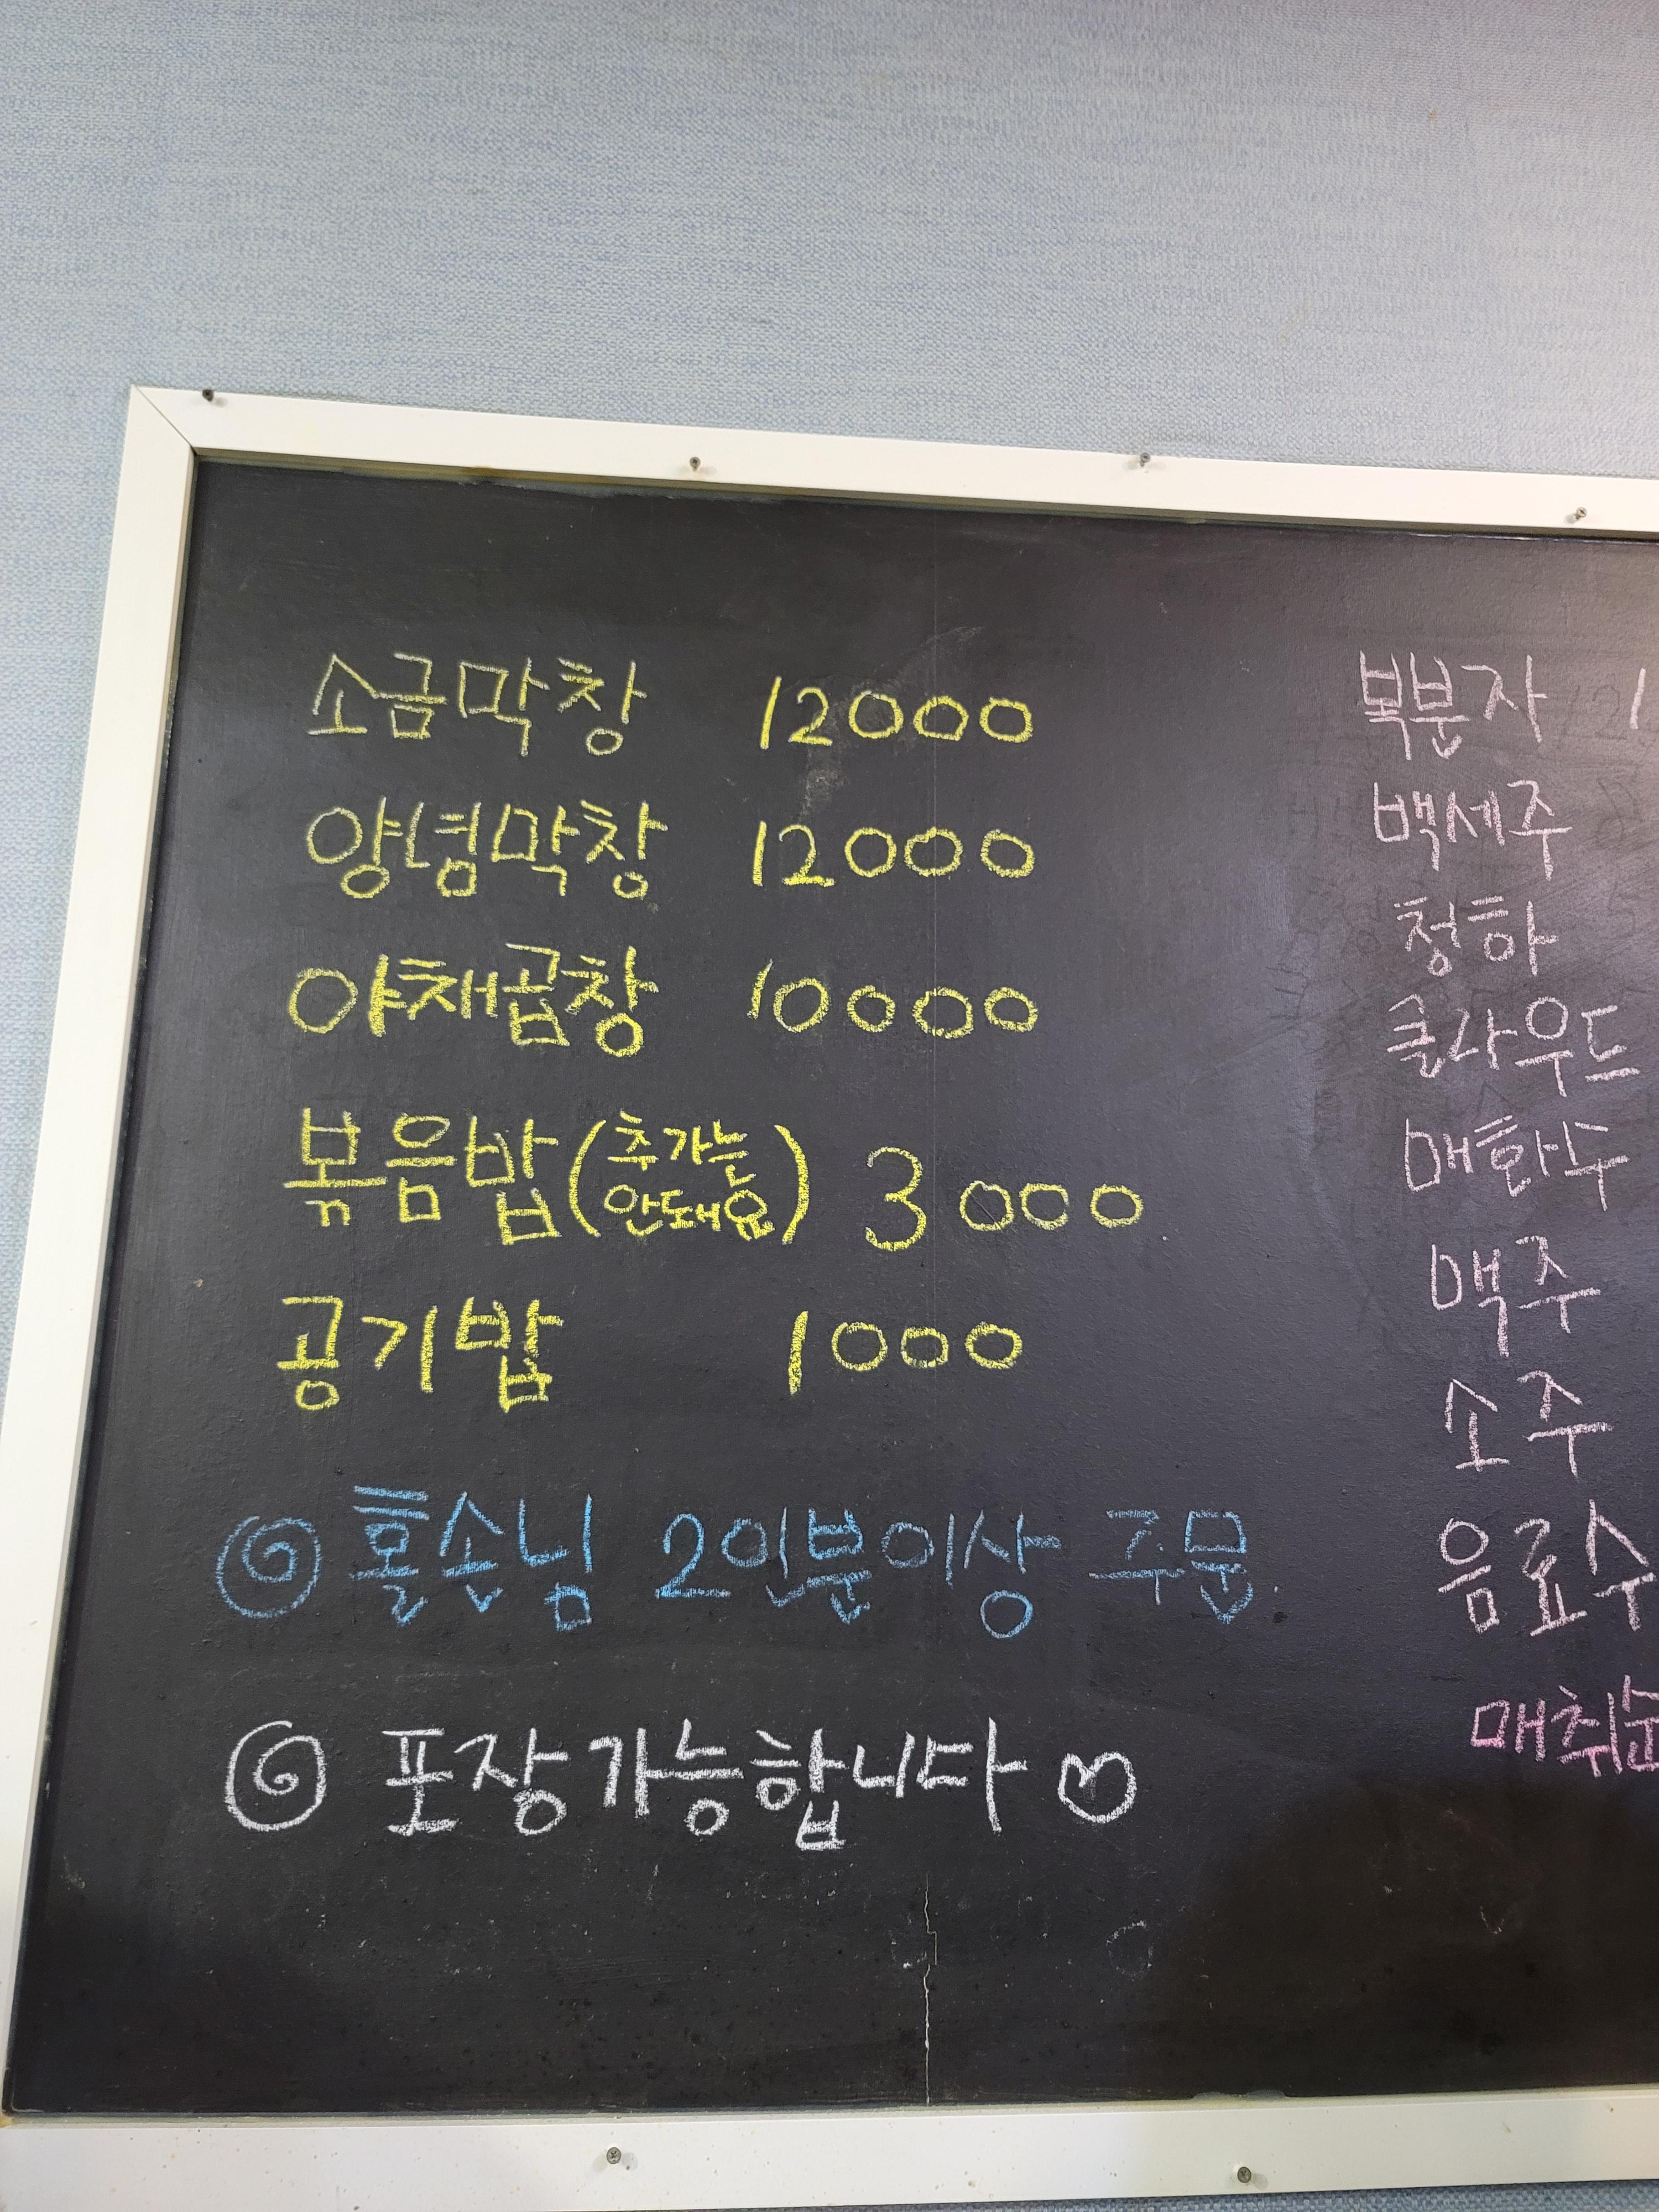 소금막창 12000
양념막창 12000
야채곱창 10000
볶음밥(추가는 안돼요) 3000
공기밥 1000
홀손님 2인분이상 주문
포장가능합니다
복분자 1
백세주
청하
클라우드
매화수
맥주
소주
음료수
매취순